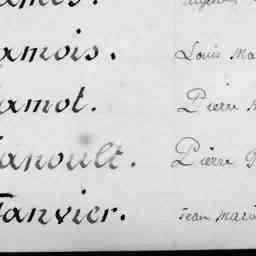 amois. Louis Ma
amot. Pierre
anoult. Pierre
Janvier. Jean Mari